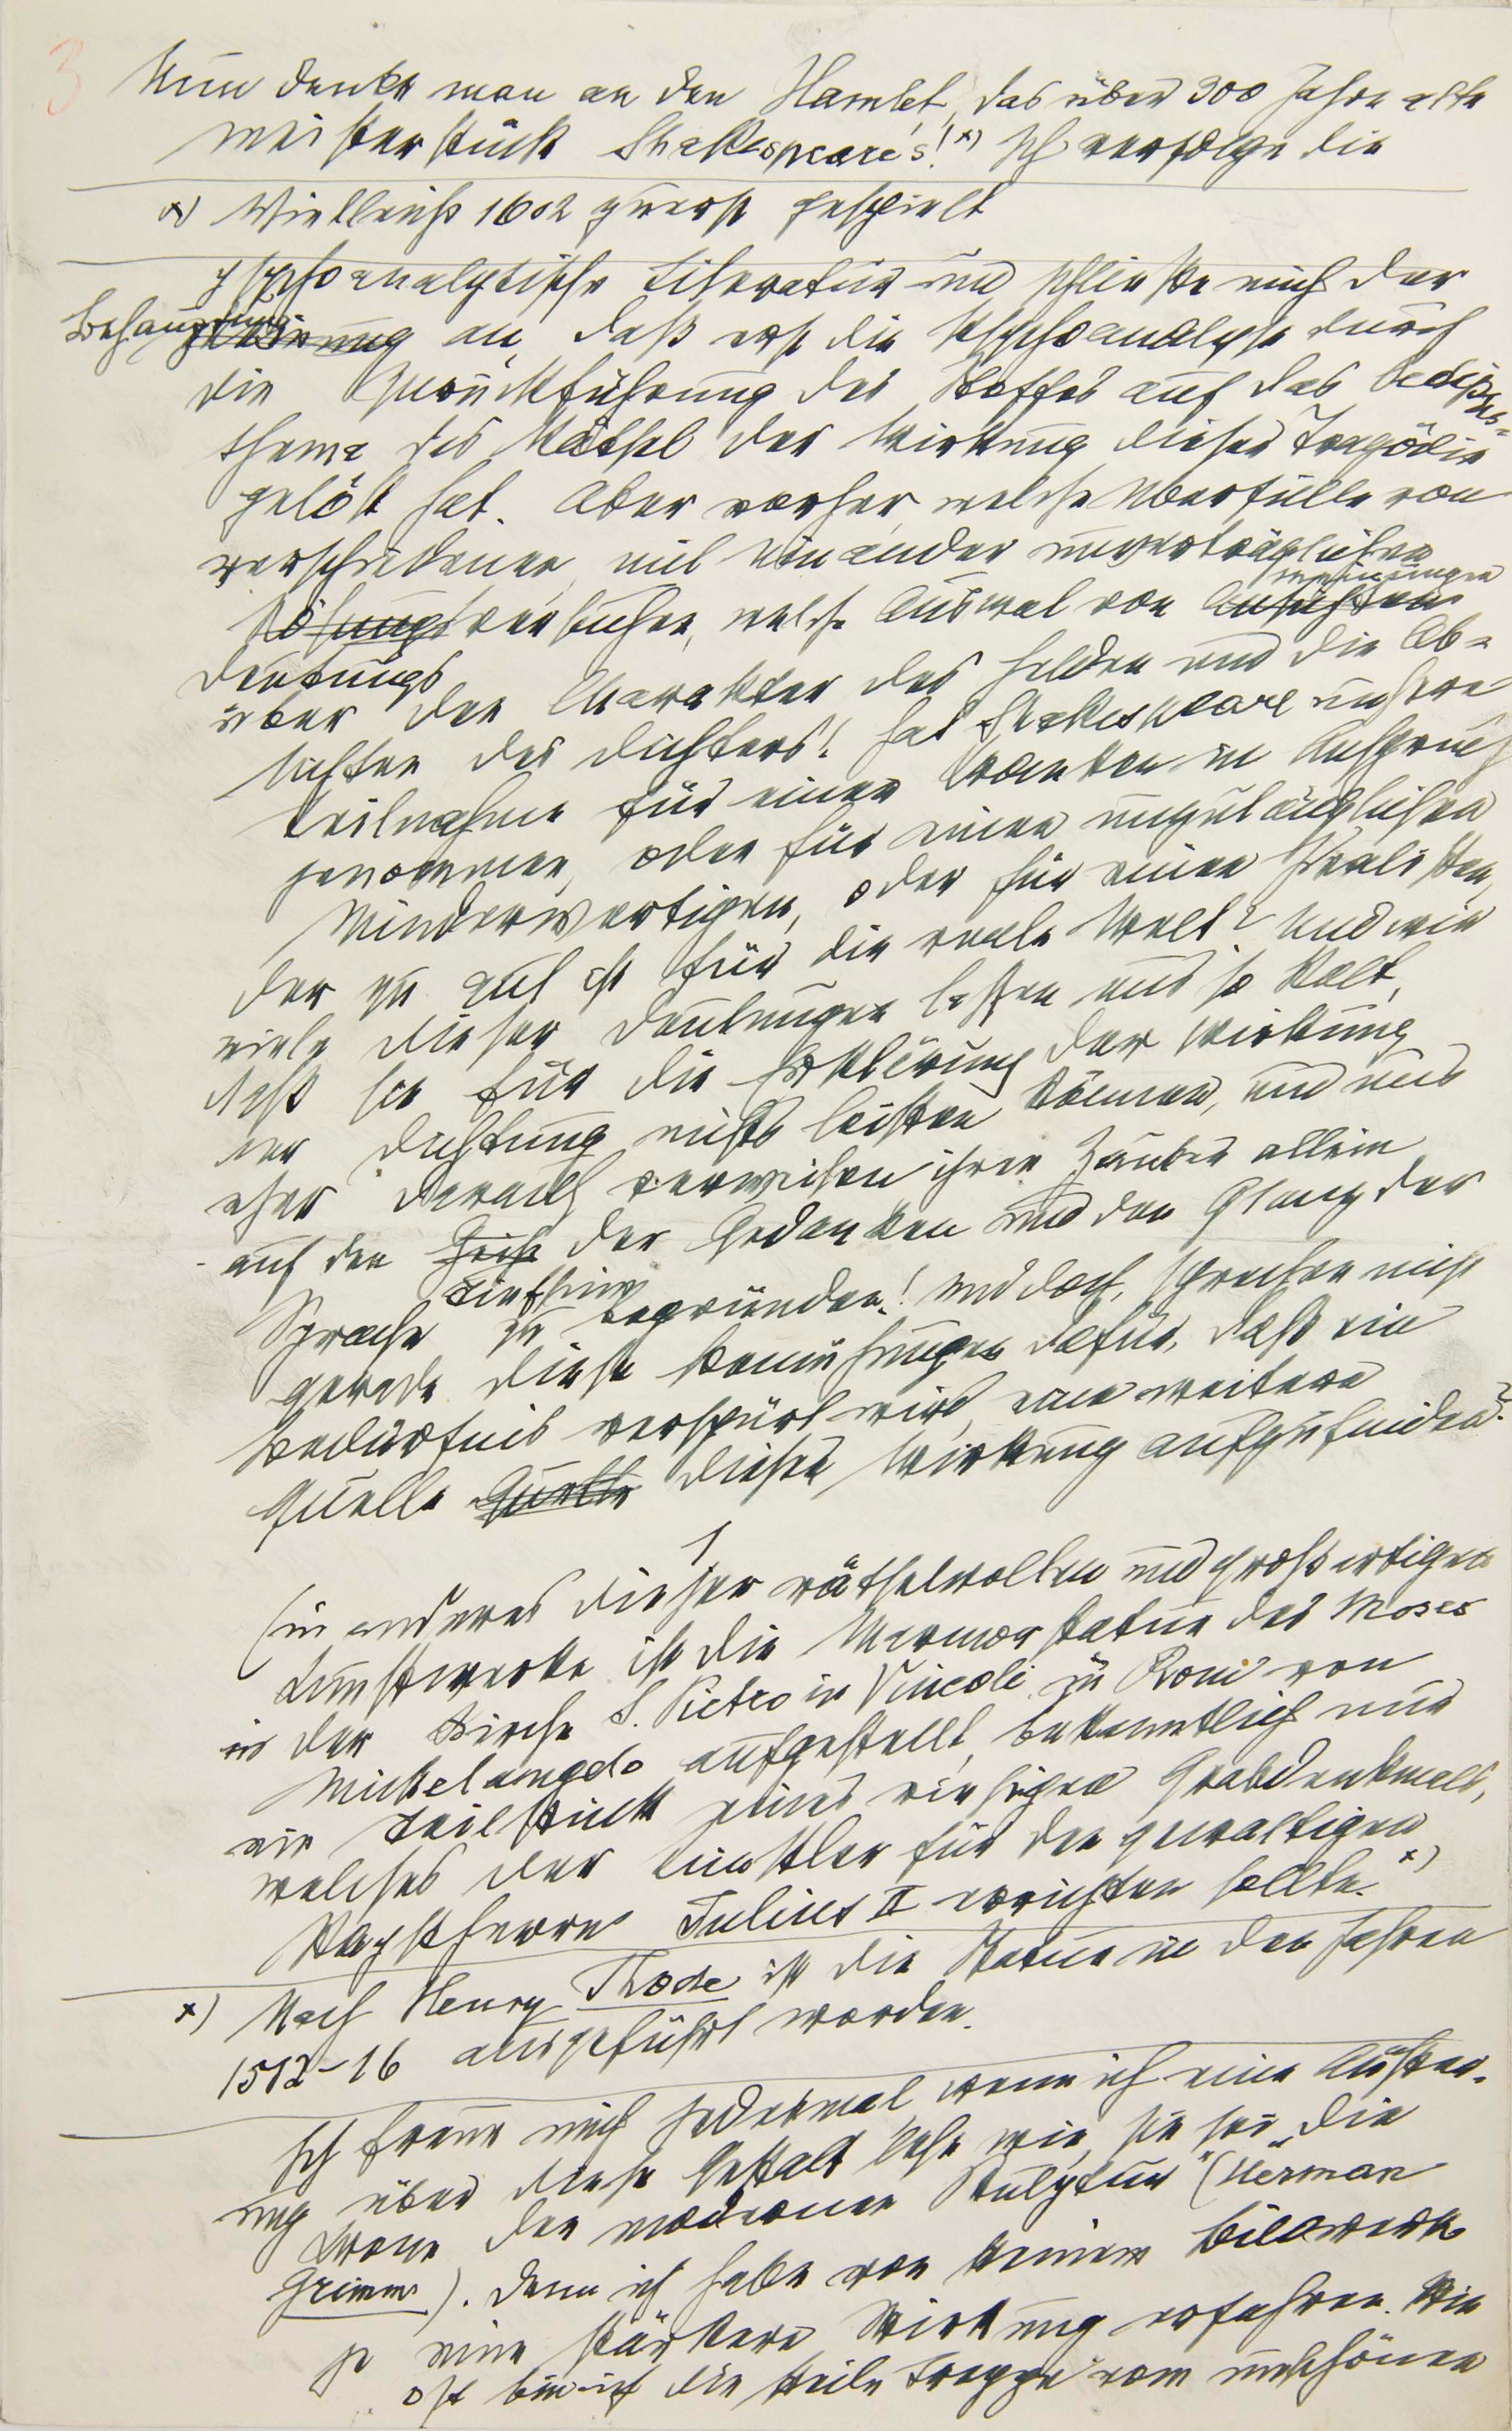 3
Nun denke man an den Hamlet, das über 300 Jahre alte
Meisterstück Shakespeare's!x) Ich verfolge die
x) Vielleicht 1602 zuerst gespielt
psychoanalytische Literatur und schließe mich der
Behauptung an, daß erst die Psychoanalyse durch
die Zurückführung des Stoffes auf das Oedipus-
thema das Rätsel der Wirkung dieser Tragödie
gelöst hat. Aber vorher, welche Überfülle von
verschiedenen, mit einander unverträglichen
Meinungen
Lösungsversuchen, welche Auswal von Ansichten
Deutungs
über den Charakter des Helden und die Ab-
sichten des Dichters! Hat Shakespeare unsere
Teilnahme für einen Kranken in Anspruch
genommen, oder für einen unzulänglichen
Minderwertigen, oder für einen Idealisten,
der zu gut ist für die reale Welt? Und wie
viele dieser Deutungen lassen uns so kalt,
daß sie für die Erklärung der Wirkung
der Dichtung nichts leisten können, und uns
eher darauf verweisen ihren Zauber allein
auf den Geist der Gedanken und den Glanz der
Tiefsinn
Sprache zu begründen! Und doch, sprechen nicht
gerade diese Bemühungen dafür, daß ein
Bedürfnis verspürt wird, eine weitere
Quelle Quelle dieser Wirkung aufzufinden?
1
Ein anderes dieser rätselvollen und großartigen
Kunstwerke ist die Marmorstatue des Moses
in der Kirche S. Pietro in Vincoli zu Rom von
Michelangelo aufgestellt, bekanntlich nur
ein Teilstück jenes riesigen Grabdenkmals,
welches der Künstler für den gewaltigen
Papstherrn Julius II errichten sollte.x)
x) Nach Henry Thode ist die Statue in den Jahren
1512-16 ausgeführt worden.
Ich freue mich jedesmal, wenn ich eine Äußer-
ung über diese Gestalt lese wie, sie sei „die
Krone der modernen Skulptur" (Herman
Grimm). Denn ich habe von keinem Bildwerk
je eine stärkere Wirkung erfahren. Wie
oft bin ich die steile Treppe vom unschönen